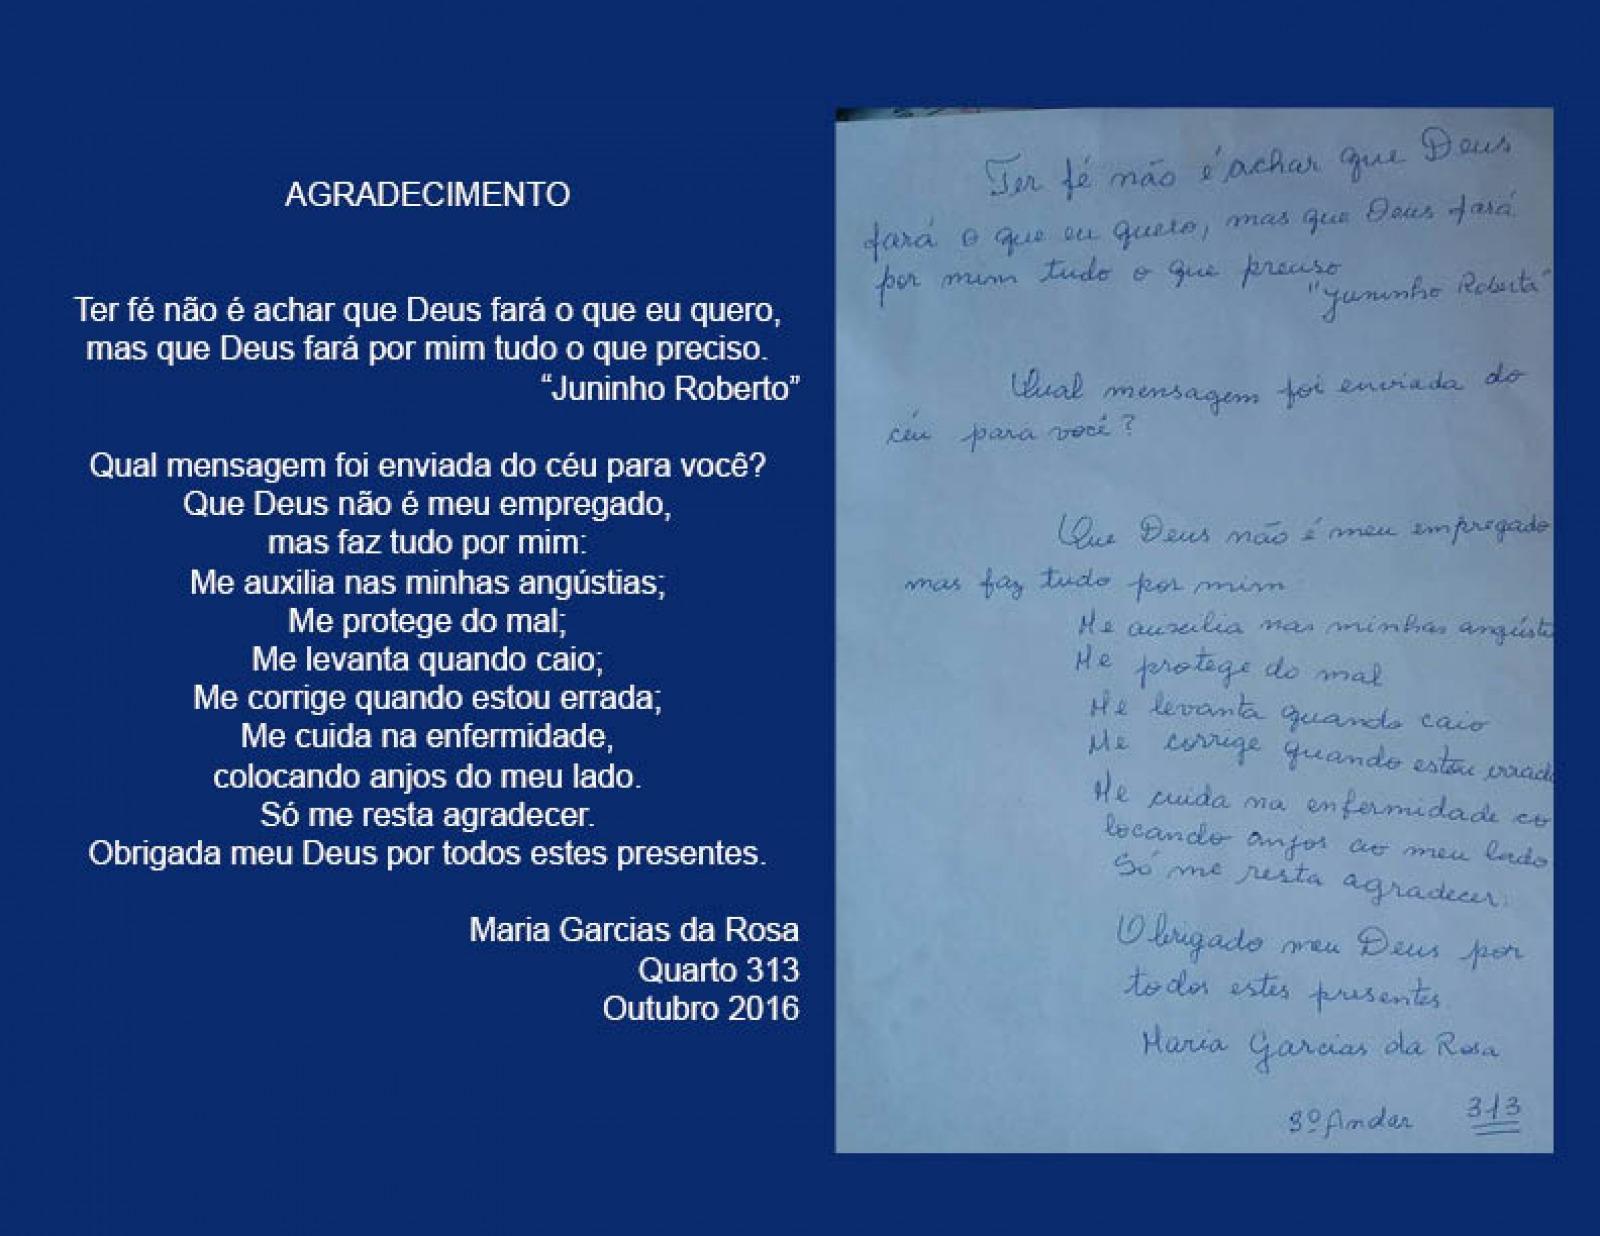 AGRADECIMENTO
Ter fé não é achar que Deus fará o que eu quero,
mas que Deus fará por mim tudo o que preciso.
“Juninho Roberto”
Qual mensagem foi enviada do céu para você?
Que Deus não é meu empregado,
mas faz tudo por mim:
Me auxilia nas minhas angústias;
Me protege do mal;
Me levanta quando caio;
Me corrige quando estou errada;
Me cuida na enfermidade,
colocando anjos do meu lado.
Só me resta agradecer.
Obrigada meu Deus por todos estes presentes.
Maria Garcias da Rosa
Quarto 313
Outubro 2016
Ter fé não é achar que Deus
fará o que eu quero, mas que Deus fará
por mim tudo o que preciso
"Juninho Roberto"
Qual mensagem foi enviada do
céu para você?
Que Deus não é meu empregado
mas faz tudo por mim
Me auxilia nas minhas angústi
Me protege do mal
Me levanta quando caio
Me corrige quando estou errad
Me cuida na enfermidade co
locando anjos ao meu lado
Só me resta agradecer.
Obrigado meu Deus por
todos estes presentes.
Maria Garcias da Rosa
3º Andar 313